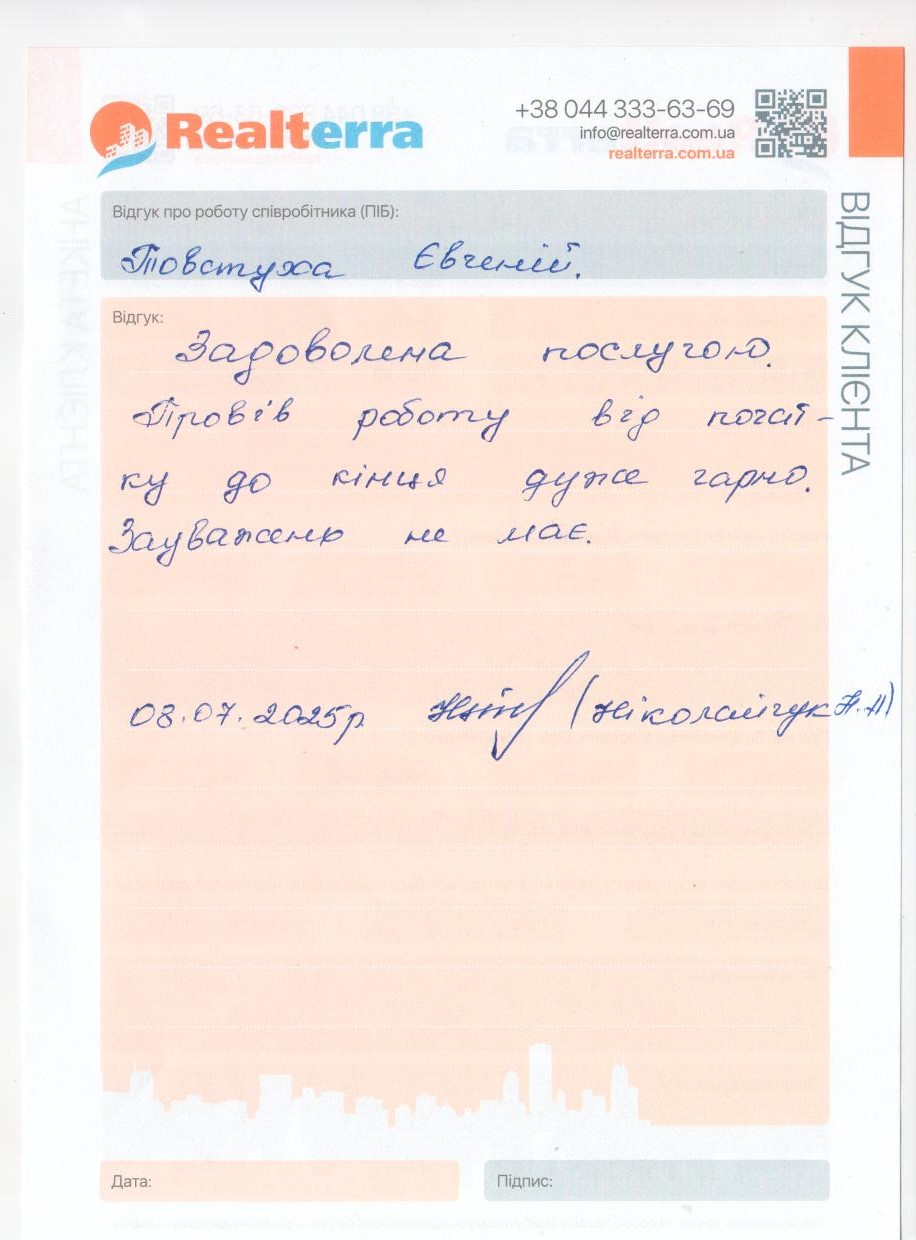 Realterra
+38 044 333-63-69
info@realterra.com.ua
realterra.com.ua
ВІДГУК КЛІЄНТА
Відгук про роботу співробітника (ПІБ):
Товстуха Євгеній.
Відгук:
Задоволена послугою.
Провів роботу від почат-
ку до кінця дуже гарно.
Зауважень не має.
08.07.2025р (Ніколайчук Н.П)
Дата:
Підпис: